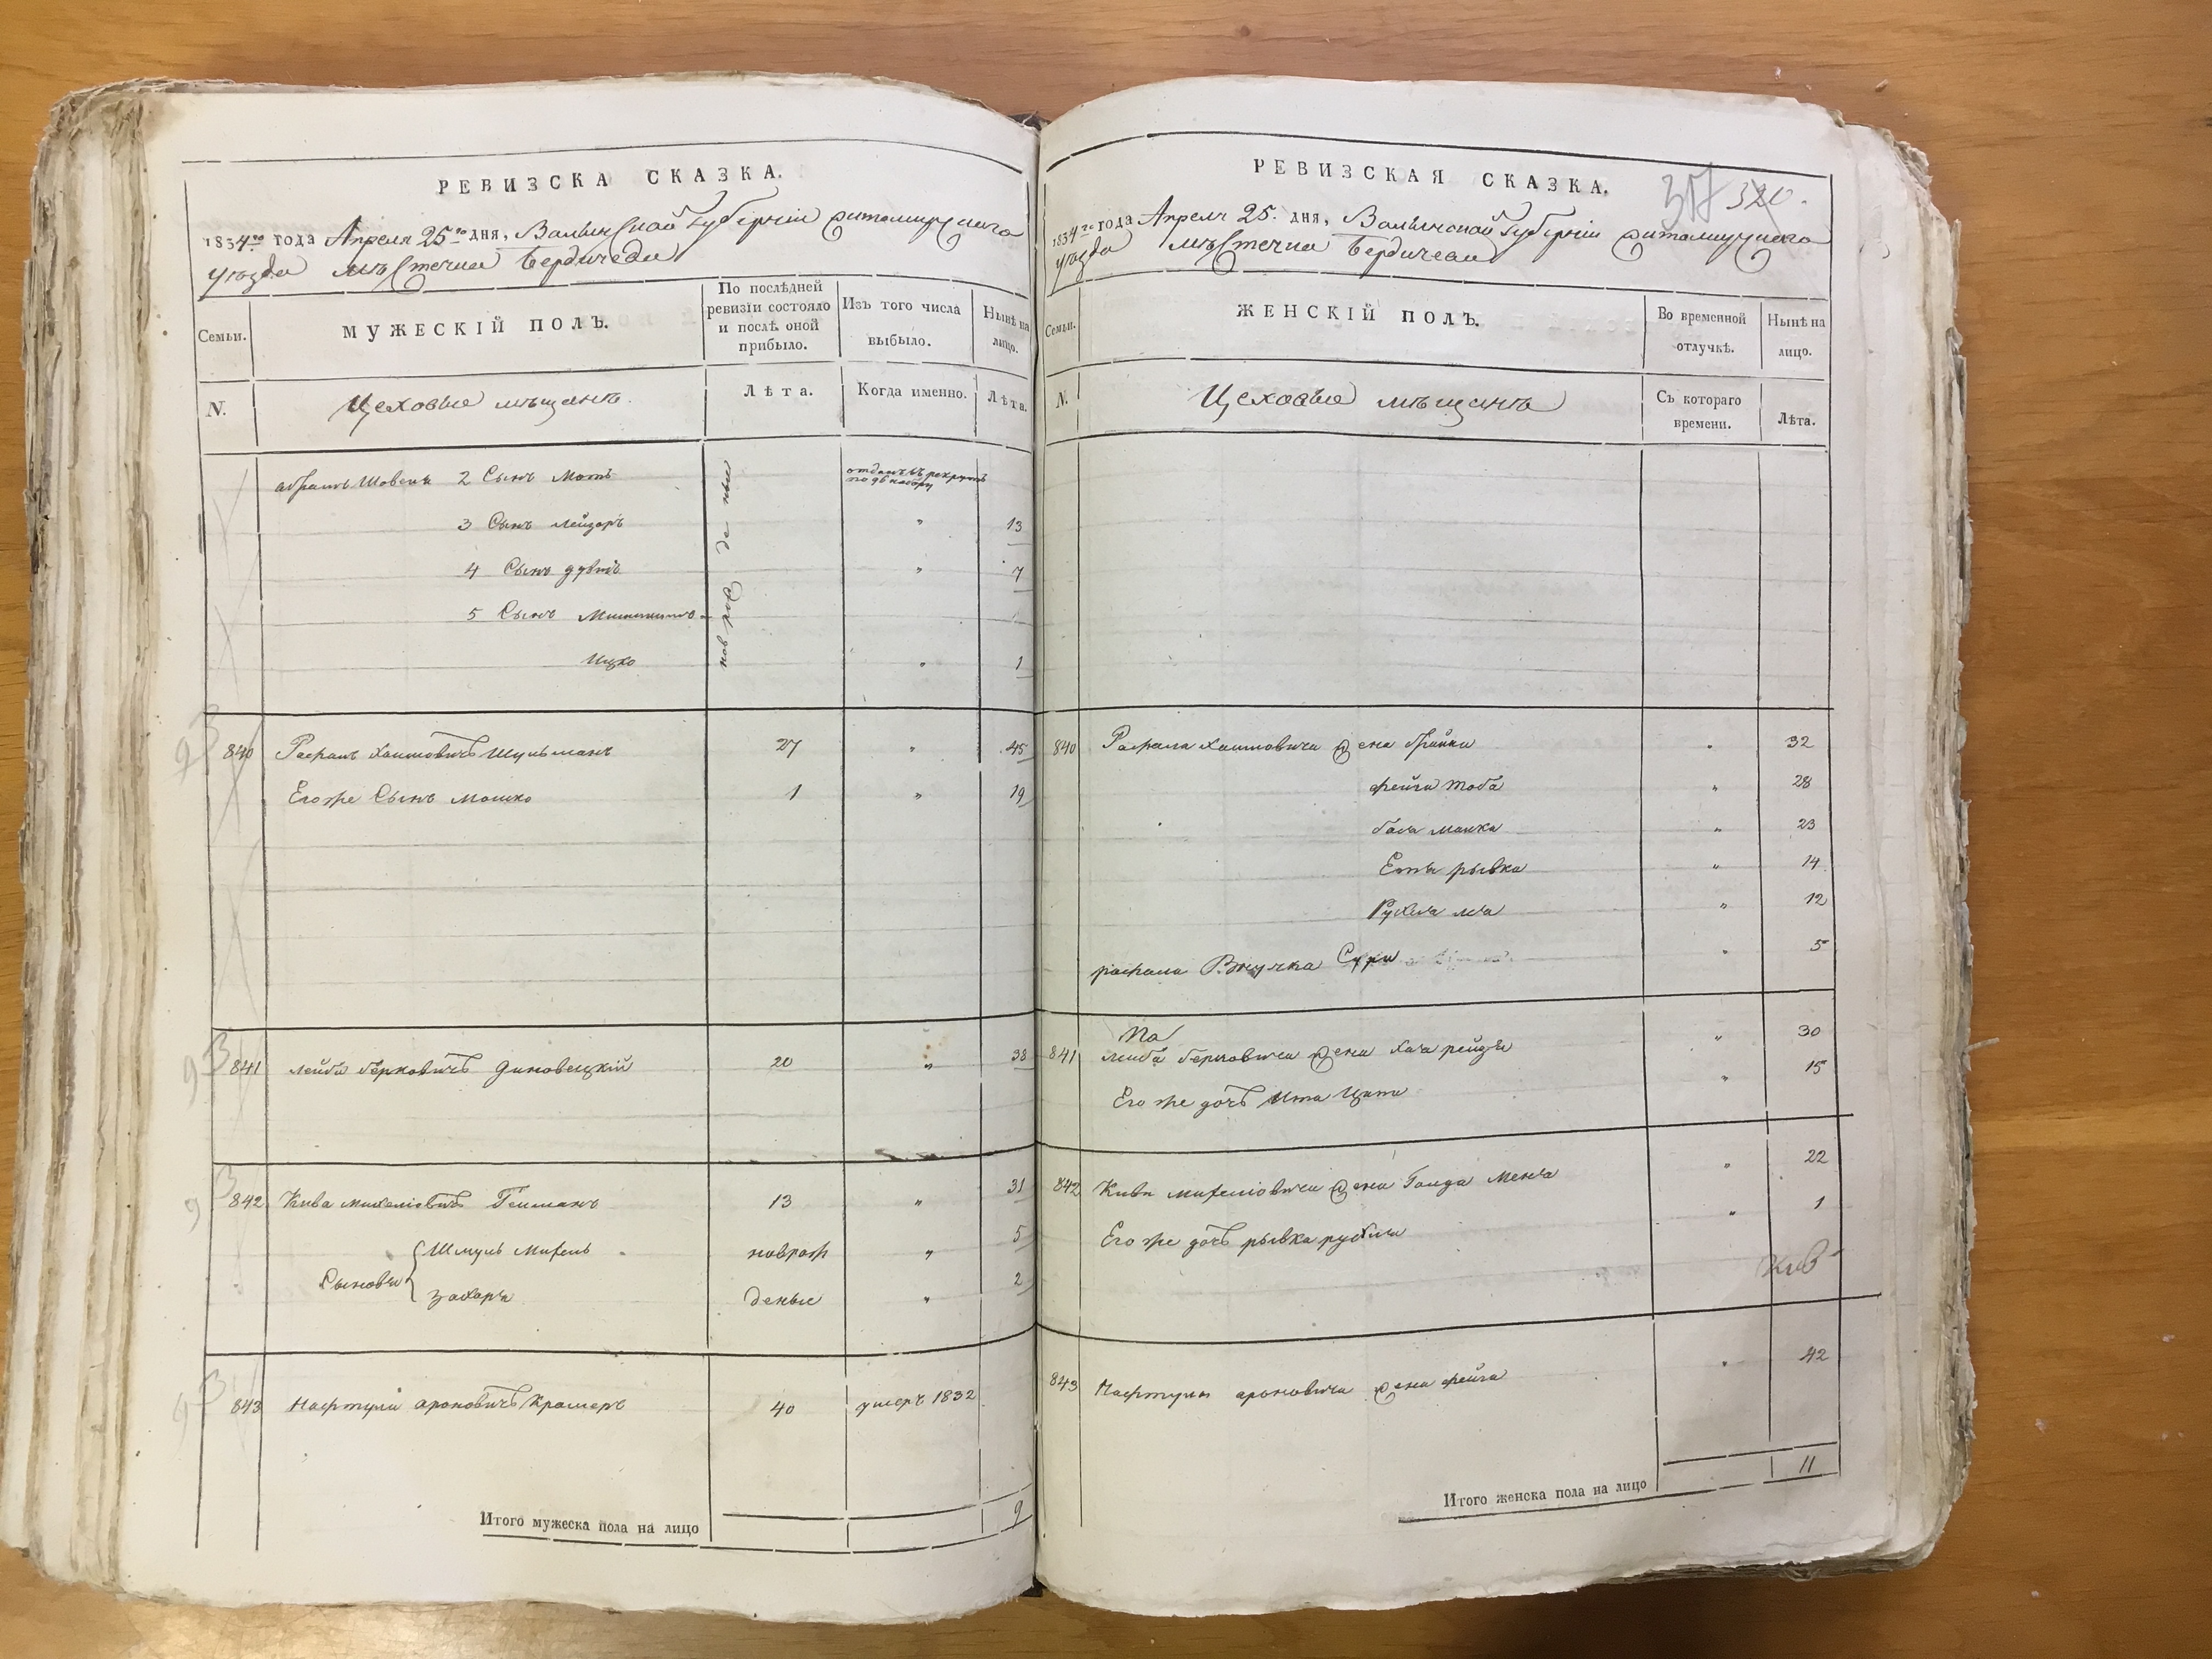 РЕВИЗСКА СКАЗКА.
1834го года Апреля 25го дня, Валынской Губерніи Житомирскаго
уѣзда мѣстечка Бердичева
Семьи.
МУЖЕСКІЙ ПОЛЪ.
По послѣдней ревизіи состояло и послѣ оной прибыло.
Изъ того числа выбыло.
Нынѣ на лицо.
N.
Цеховые мѣщанъ
Лѣта.
Когда именно.
Лѣта.
2 Сынъ Мотъ
3 Сынъ Лейзоръ " 13
4 Сынъ " 7
5 Сынъ
Ицко " 1
новорожденные
840 Рафаилъ Хаимовичъ Шульманъ 27 " 45
Его же Сынъ Мошко 1 " 19
841 Лейба Берковичъ 20 " 38
842 Кива Михеліовичъ 13 " 31
Сыновя { Шмуль Михель новрож " 5
Захарь денные " 2
843 Нафтула Ароновичъ Крамеръ 40 умеръ 1832
Итого мужеска пола на лицо 9
РЕВИЗСКАЯ СКАЗКА.
317 320.
1834го года Апреля 25. дня, Валынской Губерніи Житомирскаго
уѣзда мѣстечка Бердичева
Семьи.
ЖЕНСКІЙ ПОЛЪ.
Во временной отлучкѣ.
Нынѣ на лицо.
N.
Цеховые мѣщанъ
Съ котораго времени.
Лѣта.
840 Рафаила Хаимовича жена Брайна " 32
Фейга Тоба " 28
" 23
Рывка " 14
Рухля Леа " 12
Рафаила Внучка Сура " 5
841 Лейба Берковича жена Хая Рейзя " 30
Его же дочъ Ита " 15
842 Кивы Михеліовича жена " 22
Его же дочъ Рывка Рухля " 1
843 Нафтулы Ароновича жена Фейга " 42
Итого женска пола на лицо 11